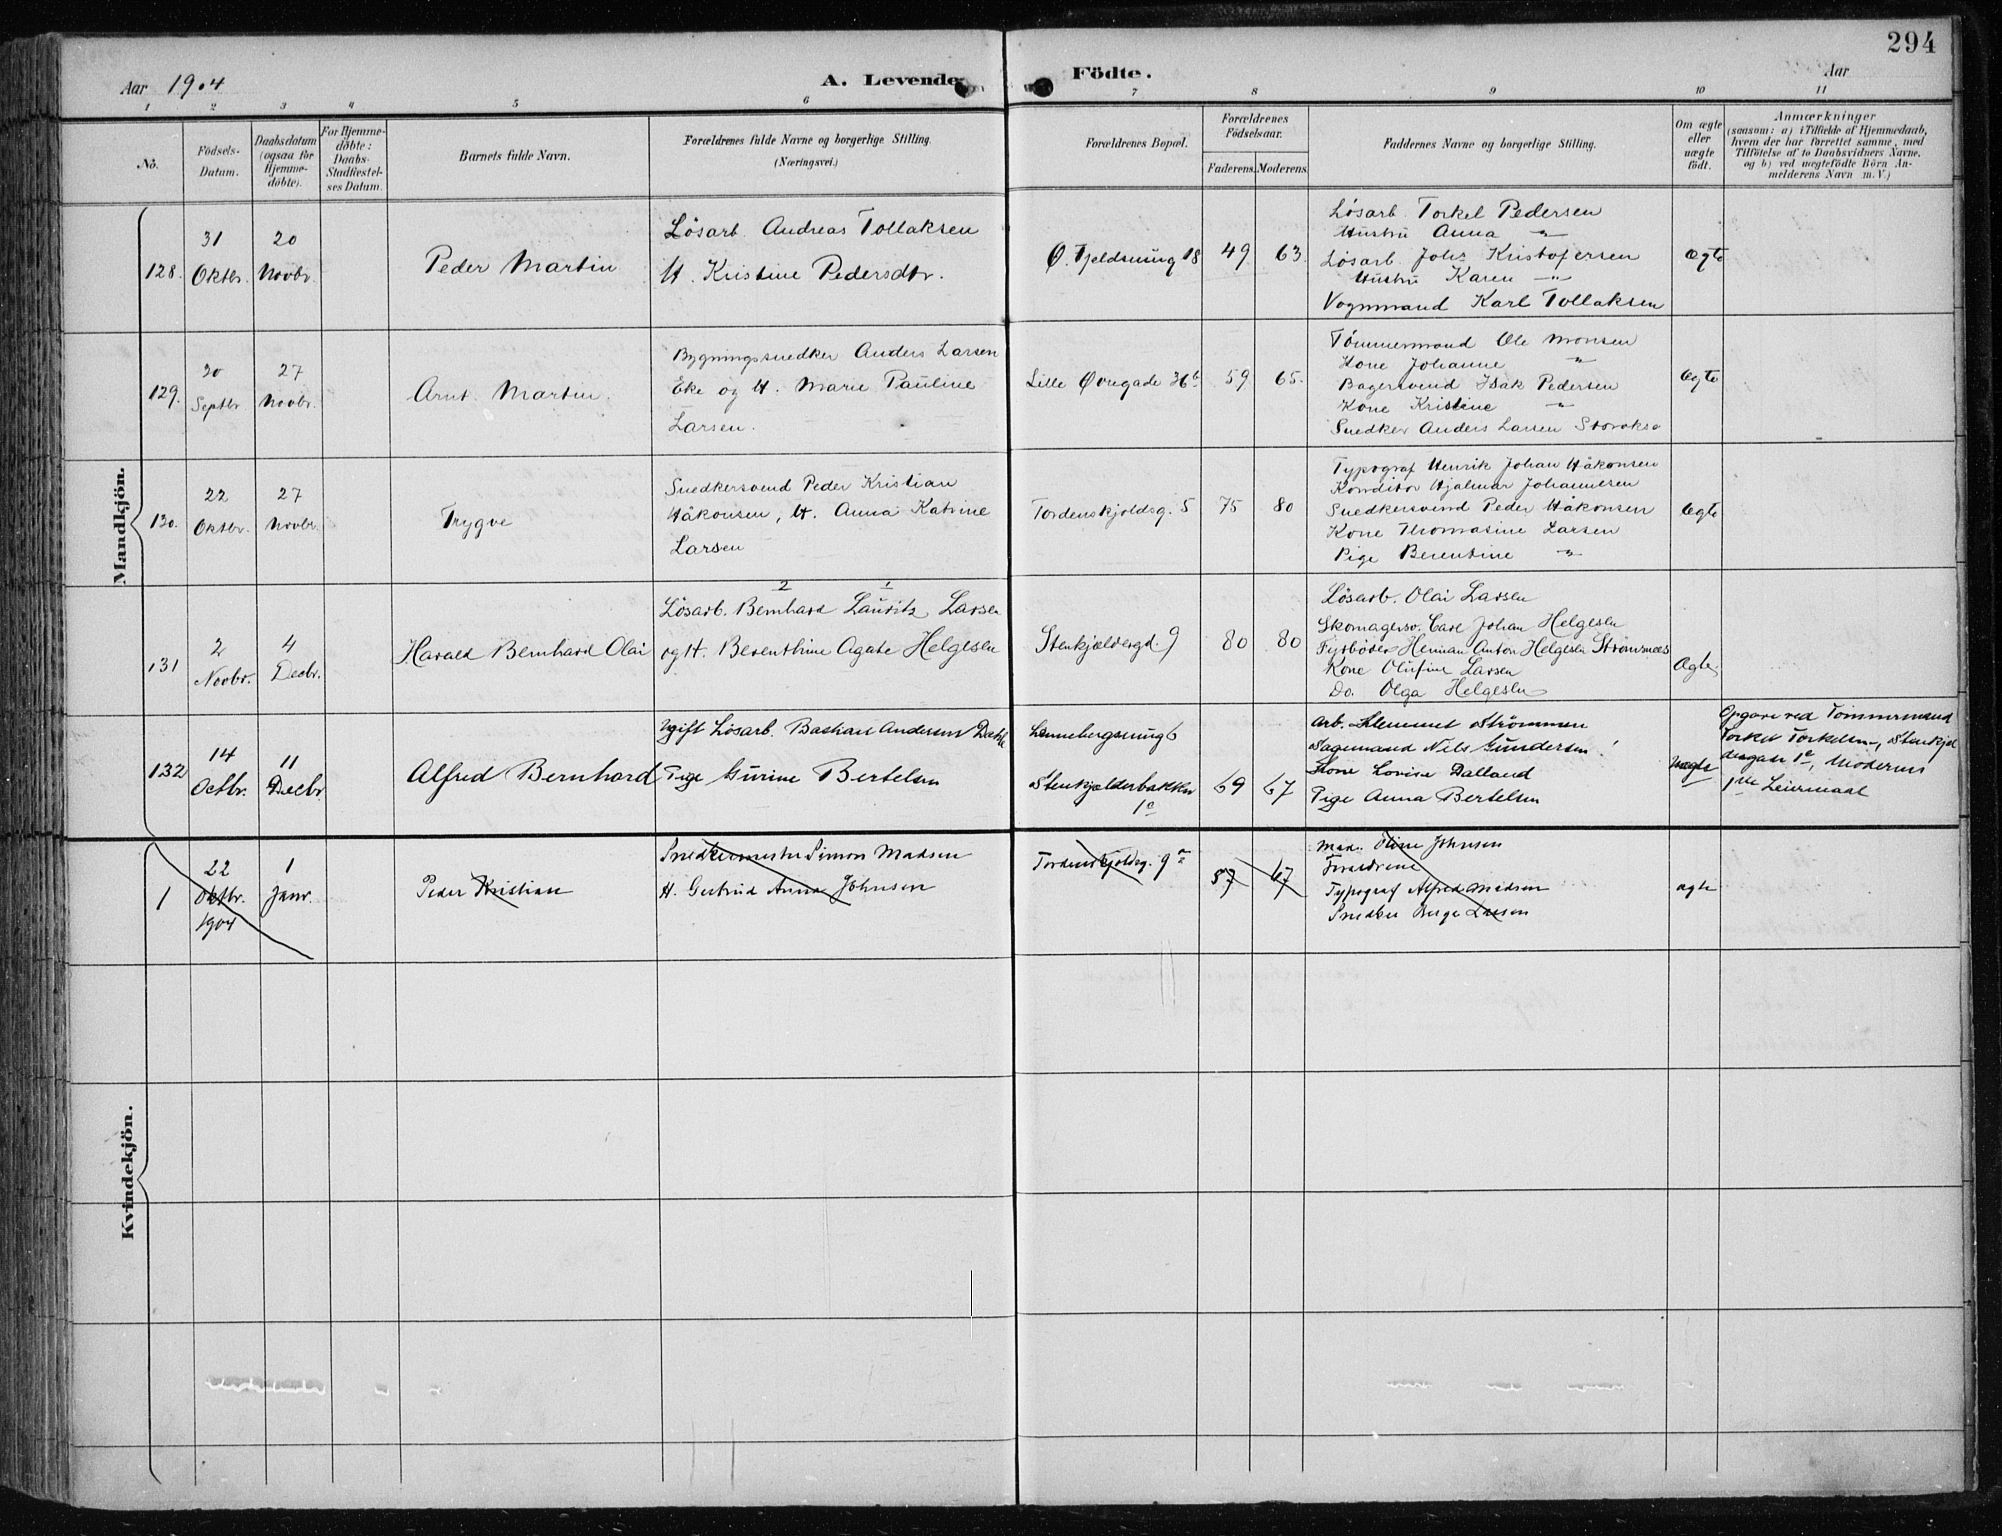 294
Aar 1904
A. Levende
Födte.
Aar
1 2 3 4 5 6 7 8 9 10 11
No.
Födsels-Datum.
Daabsdatum (ogsaa for Hjemme-döbte).
For Hjemme-döbte: Daabs-Stadfæstel-ses Datum.
Barnets fulde Navn.
Forældrenes fulde Navne og borgerlige Stilling.
(Næringsvei.)
Forældrenes Bopæl.
Forældrenes Födselsaar.
Faderens. Moderens.
Faddernes Navne og borgerlige Stilling.
Om ægte eller uægte födt.
Anmærkninger
(saasom: a) i Tilfælde af Hjemmedaab,
hvem der har forrettet samme, med
Tilföielse af to Daabsvidners Navne,
og b) ved uægtefödte Börn An-
melderens Navn m. V.)
Mandkjön.
128.
31 Oktbr.
20 Novbr.
Peder Martin
Lösarb. Andreas Tollaksen
H. Kristine Pedersdtr.
Ø. Fjeldsmug 18
49
63.
Lösarb. Torkel Pedersen
Hustru Anna "
Lösarb. Johs Kristofersen
Hustru Karen "
Vognmand Karl Tollaksen
Ægte
129.
30 Septbr
27 Novbr.
Arnt Martin.
Bygningssnedker Anders Larsen
Eke og H. Marie Pauline
Larsen.
Lille Øvregade 36b
59
65.
Tömmermand Ole Monsen
Kone Johanne "
Bagersvend Isak Pedersen
Kone Kristine "
Snedker Anders Larsen
Ægte
130.
22 Oktbr.
27 Novbr.
Trygve
Snedkersvend Peder Kristian
Håkonsen, H. Anna Katrine
Larsen
Tordenskjoldsg. 5
75
80
Typograf Henrik Johan Håkonsen
Konditor Hjalmar Johannesen
Snedkersvend Peder Håkonsen
Kone Thomasine Larsen
Pige Berentine "
Ægte
131
2 Novbr.
4 Decbr.
Harald Bernhard Olai
2 1
Lösarb. Bernhard Lauritz Larsen
og H. Berenthine Agate Helgesen
Stenkjældergd. 9
80
80
Lösarb. Olai Larsen
Skomagersv. Carl Johan Helgesen
Fyrböder Herman Anton Helgesen Strömsnes
Kone Olufine Larsen
Do. Olga Helgesen
Ægte
132
14 Octbr.
11 Decbr.
Alfred Bernhard
Ugift Lösarb. Bastian Andersen
Pige Gurine Bertelsen
Lennebergsmug 6
Stenkjælderbakken
1c
69
67
Arb. Klemmet Strömmen
Sagmand Nils Gundersen
Kone Lovise Dalland
Pige Anna Bertelsen
Uægte
Opgave ved Tömmermand
Torkel Torkelsen, Stenkjæl
dergate 1c, Moderens
1ste Leiermaal
1
22 Oktbr. 1904
1 Janr.
Peder Kristian
Snedkermester Simon Madsen
H. Gertrud Anna Johnsen
Tordenskjoldsg. 9a
57
67
Mad. Oline Johnsen
Forældrene
Typograf Alfred Madsen
Snedker Berge Larsen
ægte
Kvindekjön.